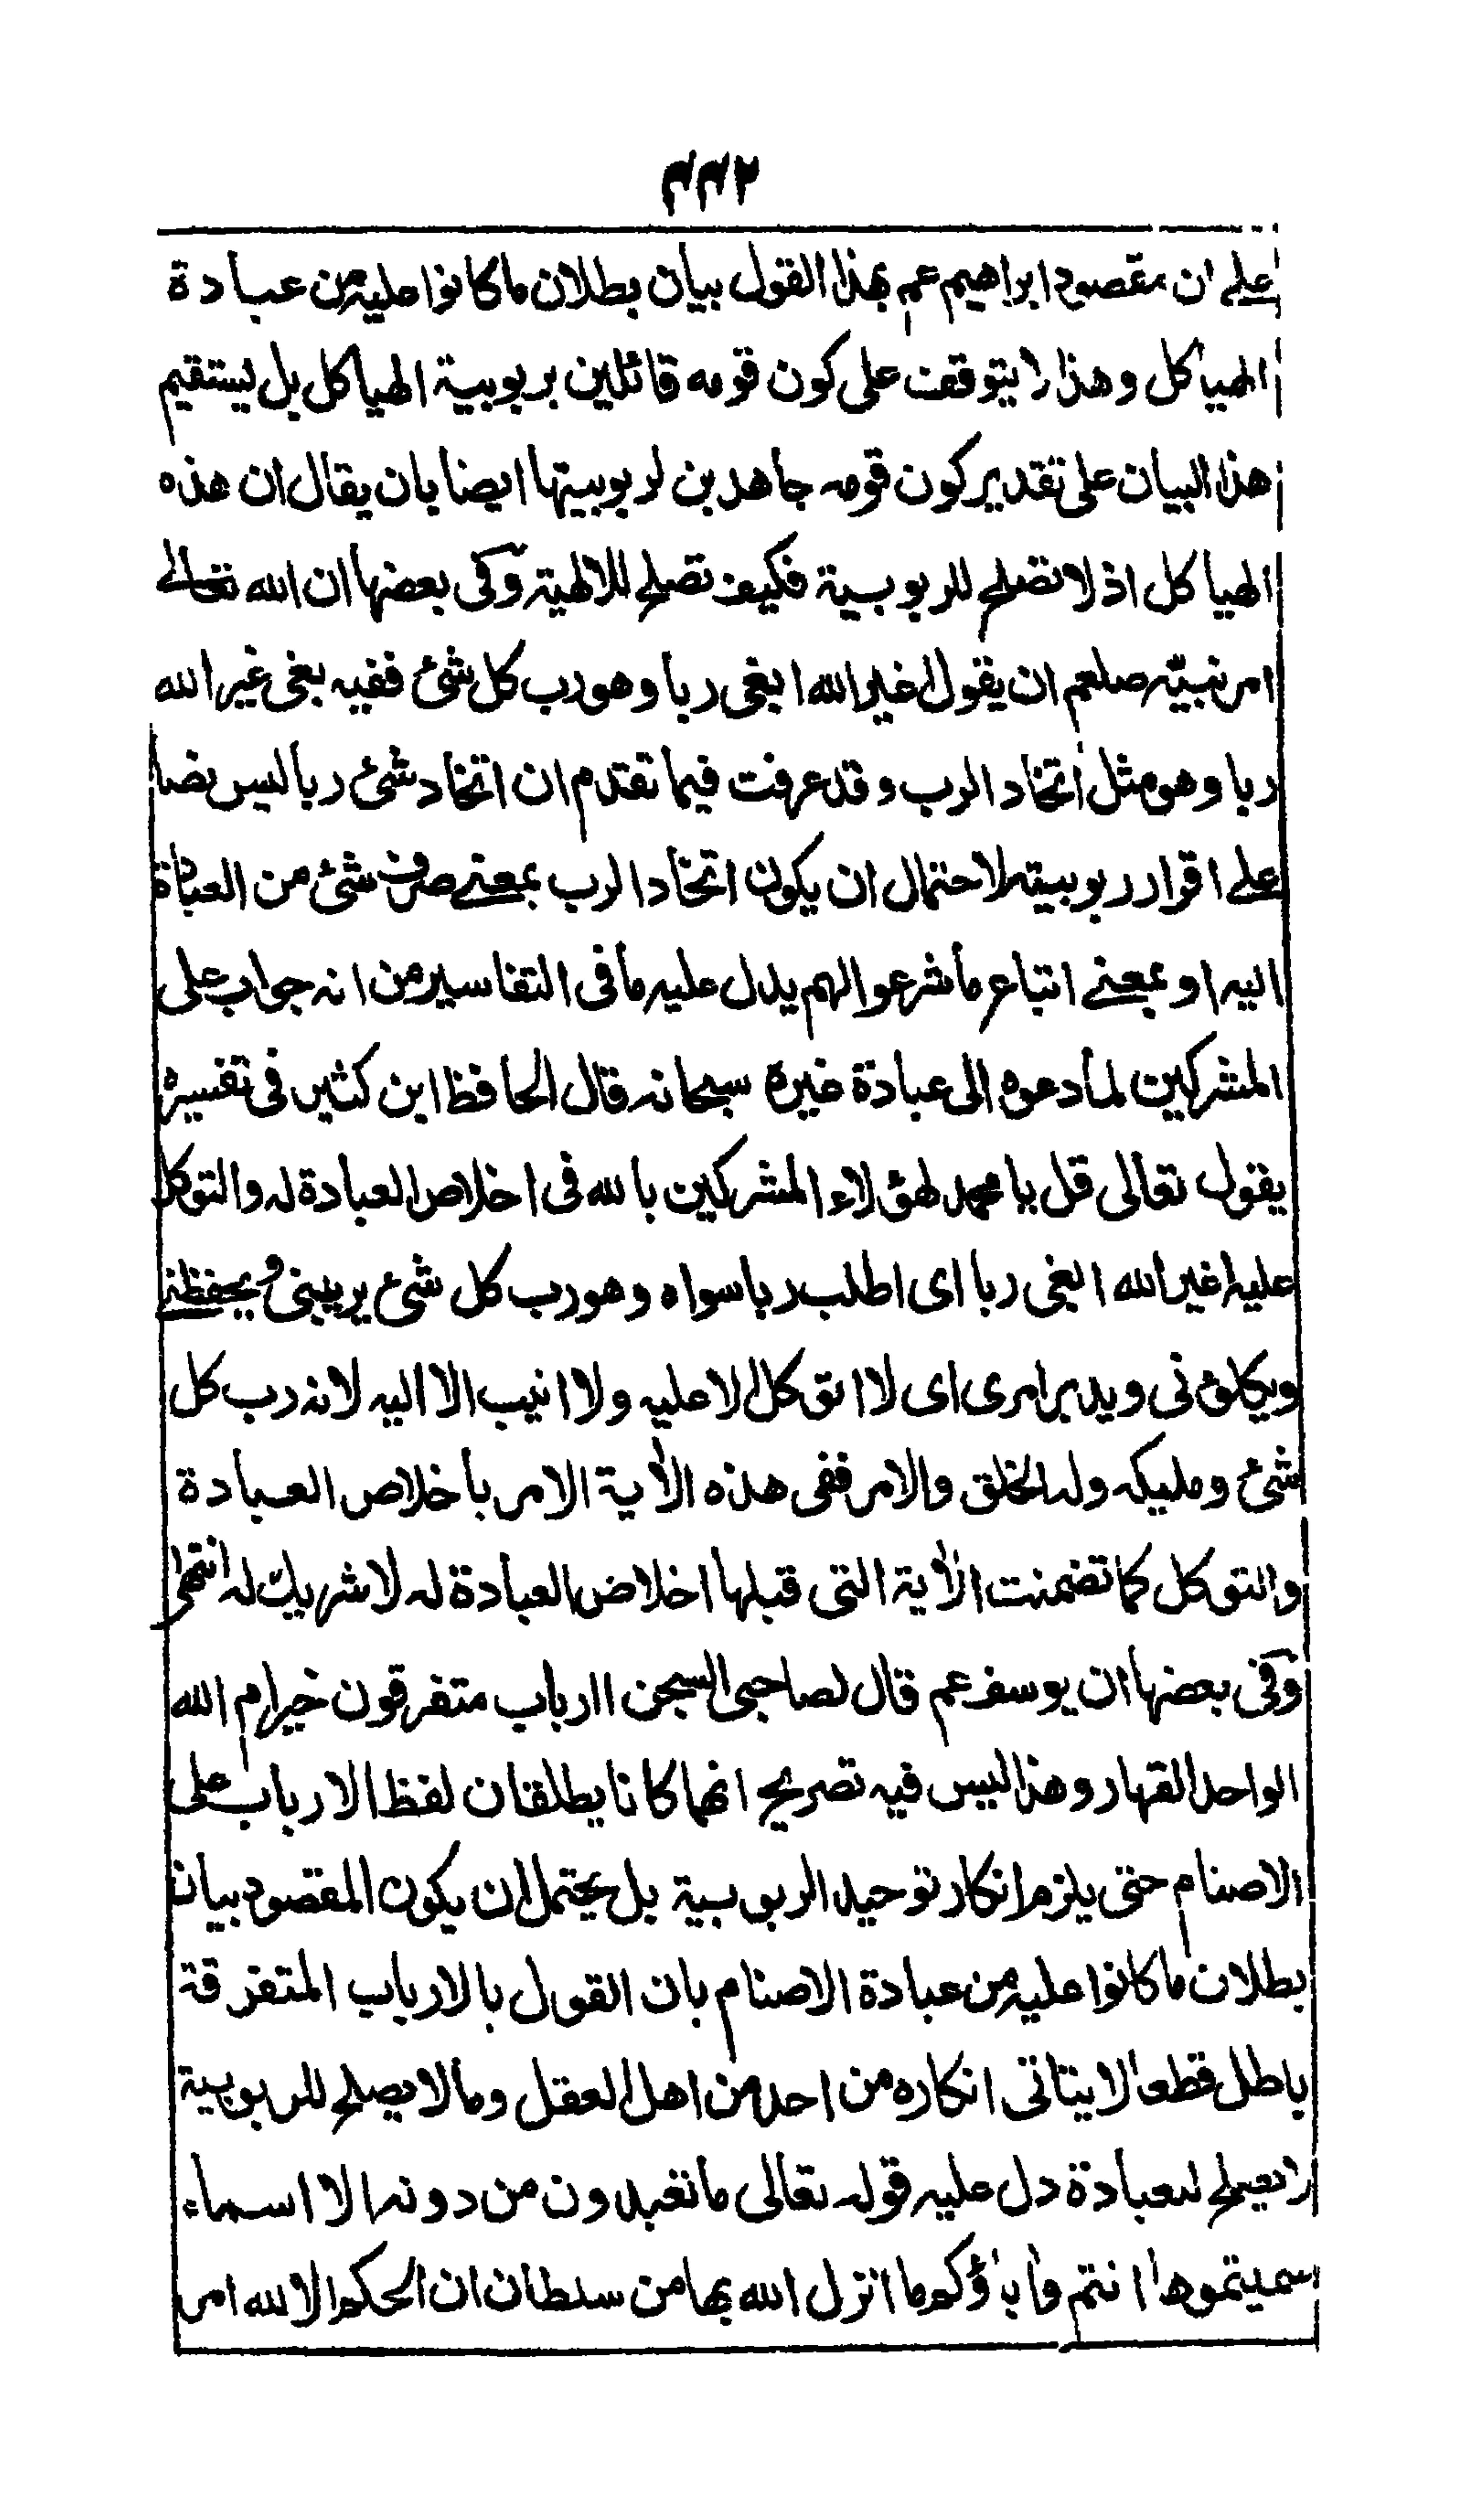 ٤٤٢
على ان مقصود ابراهيم عم بهذا القول بيان بطلان ما كانوا عليه من عبادة
الهياكل وهذا لا يتوقف على كون قومه قائلين بربوبية الهياكل بل يستقيم
هذا البيان على تقدير كون قومه جاهدين لربوبيتها ايضا بان يقال ان هذه
الهياكل اذ لا تصلح للربوبية فكيف تصلح للالهية وفى بعضها ان الله تعالى
امر نبيه صلعم ان يقول اغير الله ابغى ربا وهو رب كل شئ ففيه بغى غير الله
ربا وهو مثل اتخاذ الرب وقد عرفت فيما تقدم ان اتخاذ شئ ربا ليس نصا
على اقرار ربوبيته لاحتمال ان يكون اتخاذ الرب بمعنى صرف شئ من العبادة
اليه او بمعنى اتباع ما شرعوا لهم يدل عليه ما فى التفاسير من انه جواب على
المشركين لما دعوه الى عبادة غيره سبحانه قال الحافظ ابن كثير فى تفسيره
يقول تعالى قل يا محمد لهؤلاء المشركين بالله فى اخلاص العبادة له والتوكل
عليه اغير الله ابغى ربا اى اطلب ربا سواه وهو رب كل شئ يربينى ويحفظنى
ويكلؤنى ويدبر امرى اى لا اتوكل الا عليه ولا انيب الا اليه لانه رب كل
شئ ومليكه وله الخلق والامر ففى هذه الآية الامر باخلاص العبادة
والتوكل كما تضمنت الآية التى قبلها اخلاص العبادة له لا شريك له انتهى
وفى بعضها ان يوسف عم قال لصاحبى السجن اارباب متفرقون خير ام الله
الواحد القهار وهذا ليس فيه تصريح انهما كانا يطلقان لفظ الارباب على
الاصنام حتى يلزم انكار توحيد الربوبية بل يحتمل ان يكون المقصود بيان
بطلان ما كانوا عليه من عبادة الاصنام بان القول بالارباب المتفرقة
باطل قطعا لا يتاتى انكاره من احد من اهل العقل وما لا يصلح للربوبية
لا يصلح للعبادة دل عليه قوله تعالى ما تعبدون من دونه الا اسماء
سميتموها انتم وآباؤكم ما انزل الله بها من سلطان ان الحكم الا لله امر